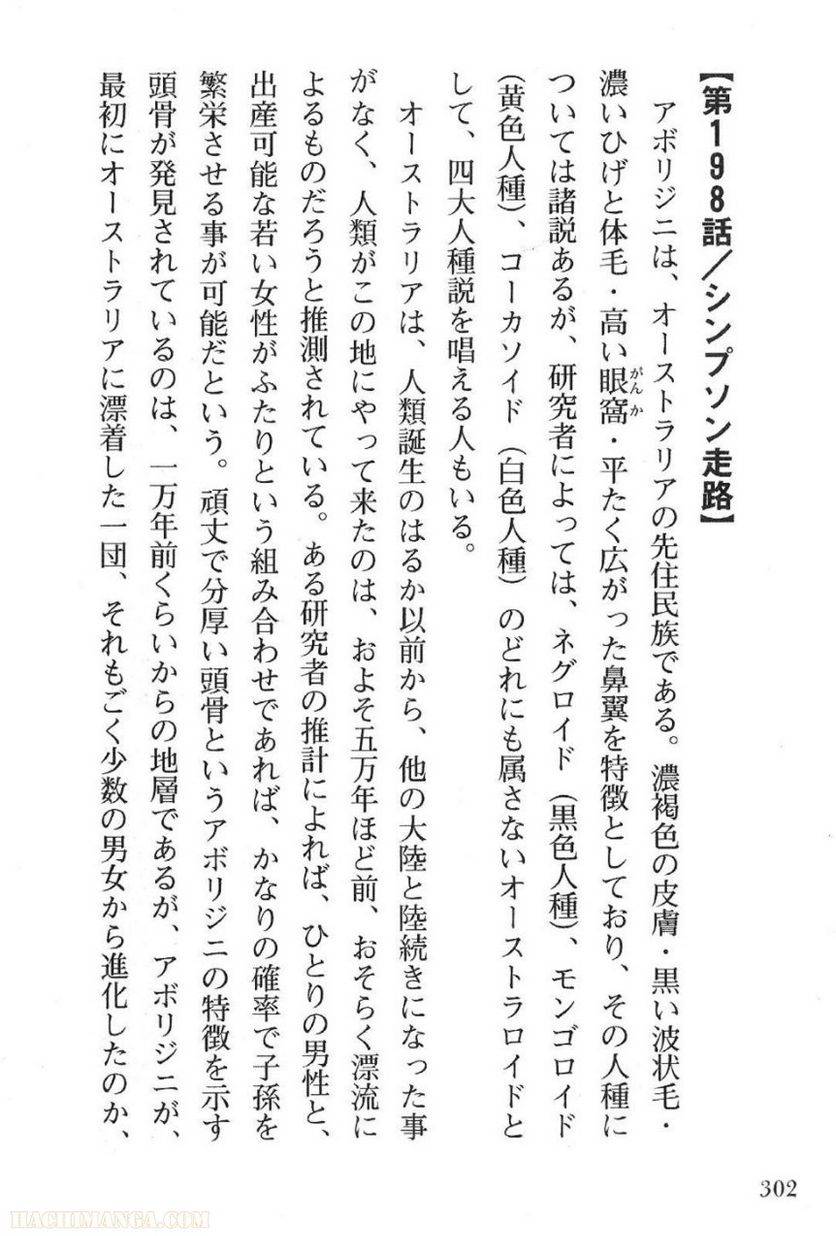 【第198話／シンプソン走路】
アボリジニは、オーストラリアの先住民族である。濃褐色の皮膚・黒い波状毛・
濃いひげと体毛・高い眼窩・平たく広がった鼻翼を特徴としており、その人種に
がんか
ついては諸説あるが、研究者によっては、ネグロイド（黒色人種）、モンゴロイド
（黄色人種）、コーカソイド（白色人種）のどれにも属さないオーストラロイドと
して、四大人種説を唱える人もいる。
オーストラリアは、人類誕生のはるか以前から、他の大陸と陸続きになった事
がなく、人類がこの地にやって来たのは、およそ五万年ほど前、おそらく漂流に
よるものだろうと推測されている。ある研究者の推計によれば、ひとりの男性と、
出産可能な若い女性がふたりという組み合わせであれば、かなりの確率で子孫を
繁栄させる事が可能だという。頑丈で分厚い頭骨というアボリジニの特徴を示す
頭骨が発見されているのは、一万年前くらいからの地層であるが、アボリジニが、
最初にオーストラリアに漂着した一団、それもごく少数の男女から進化したのか、
302
HACHIMANGA.COM